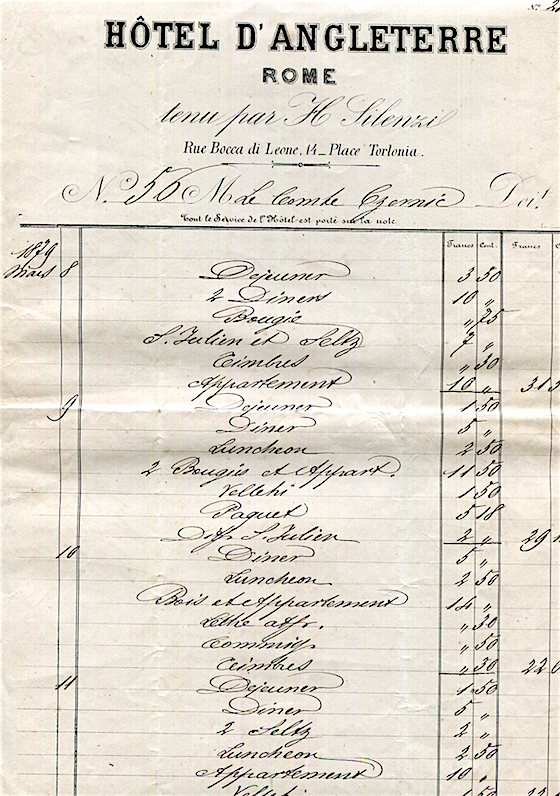 N.
HÔTEL D'ANGLETERRE
ROME
tenu par H Silenzi
Rue Bocca di Leone, 14 _ Place Torlonia.
N. 56 M Le Comte Czernic Doit
Tout le Service de l'Hôtel est porté sur la note
Francs Cent. Francs
1879
Mars 8 Dejeuner 3 50
2 Diners 10 "
Bougie " 75
S. Julien et Seltz 7 "
Timbres " 30
Appartement 10 " 31 5
9 Dejeuner 1 50
Diner 5 "
Luncheon 2 50
2 Bougies et Appart. 11 50
1 50
Paquet 5 18
Diff. S. Julien 2 " 29
10 Diner 5 "
Luncheon 2 50
Bois et Appartement 14 "
affr. " 30
" 50
Timbres " 30 22 6
11 Dejeuner 1 50
Diner 5 "
2 Seltz 2 "
Luncheon 2 50
Appartement 10 "
1 50